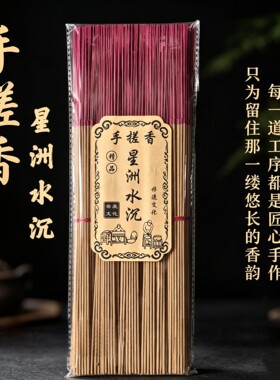 手搓香
星洲水沉
手搓香
精品
星洲水沉
禅道文化
每一道工序都是匠心手作
只为留住那一缕悠长的香韵